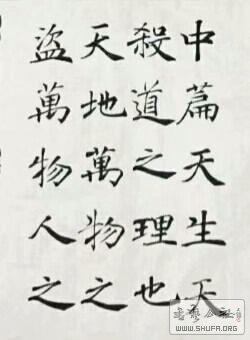 中篇天生天
殺道之理也
天地萬物之
盜萬物人之
書藝公社
WWW.SHUFA.ORG